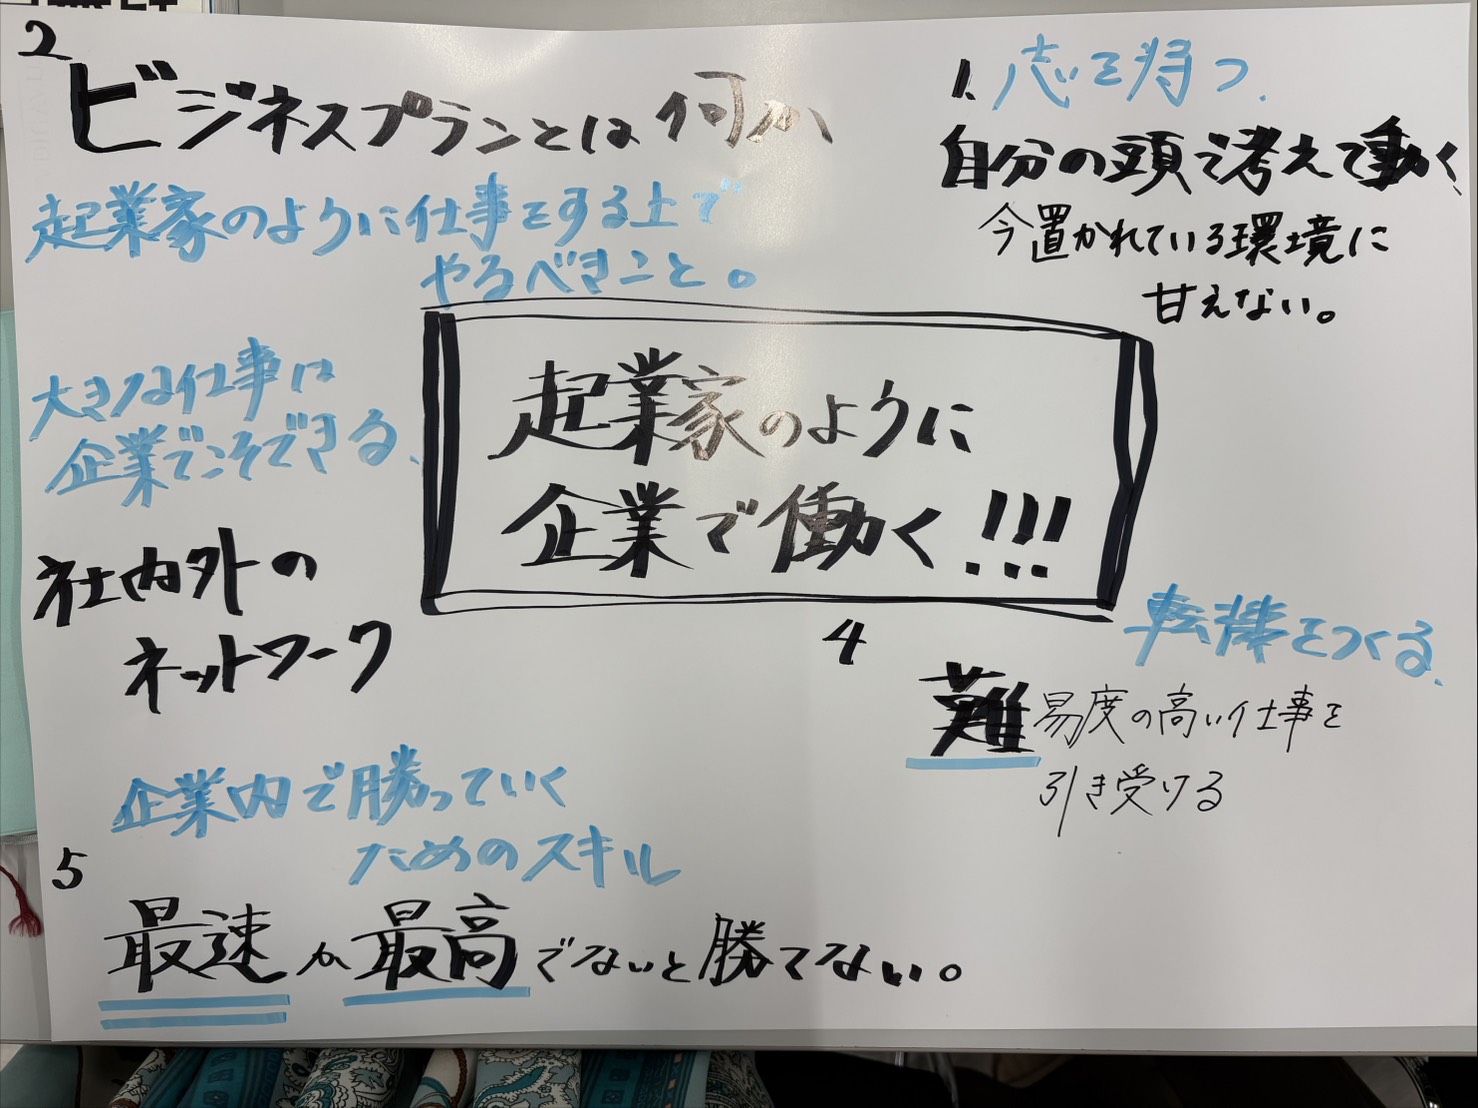 2
ビジネスプランとは何か
起業家のように仕事をする上で
やるべきこと。
1. 志を持つ.
自分の頭で考えて働く
今置かれている環境に
甘えない。
起業家のように
企業で働く!!!
大きな仕事は
企業でこそできる.
社内外の
ネットワーク
4
転機をつくる.
難易度の高い仕事を
引き受ける
企業内で勝っていく
ためのスキル
5
最速か最高でないと勝てない。